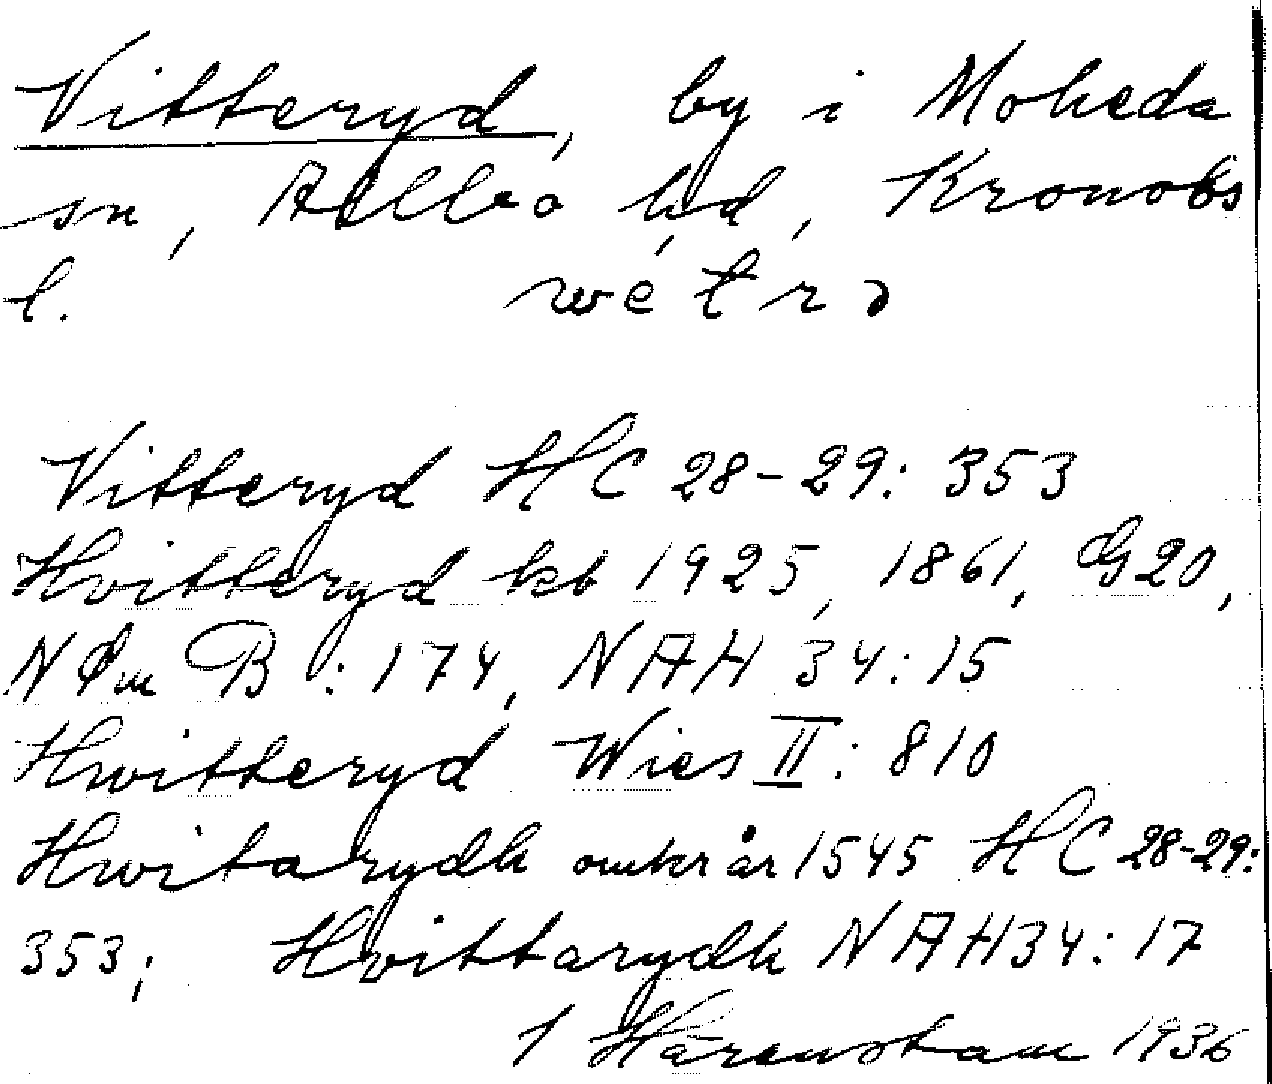 Vitteryd, by i Moheda
sn, Allbo hd, Kronobs
l. wétrə
Vitteryd HC 28-29: 353
Hvitteryd kb 1925, 1861, G20,
N Sm B : 174, NAH 34:15
Hwitteryd Wies II: 810
Hwitarydh omkr år 1545 HC 28-29:
353; Hvittarydh NAH34: 17
1 Härenstam 1936